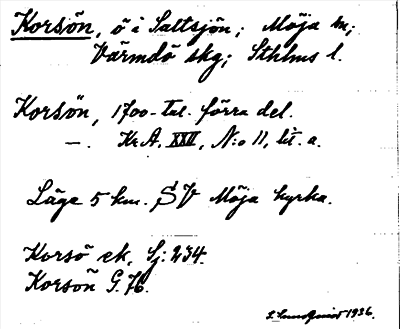 Korsön, ö i Saltsjön; Möja sn;
Värmdö skg; Sthlms l.
Korsön, 1700-tal. förra del.
—. Kr.A. XXII, N:o 11, lit. a.
Läge 5 km. SV Möja kyrka.
Korsö ek. Sj: 234.
Korsön G. 76.
S. Lundquist 1936.